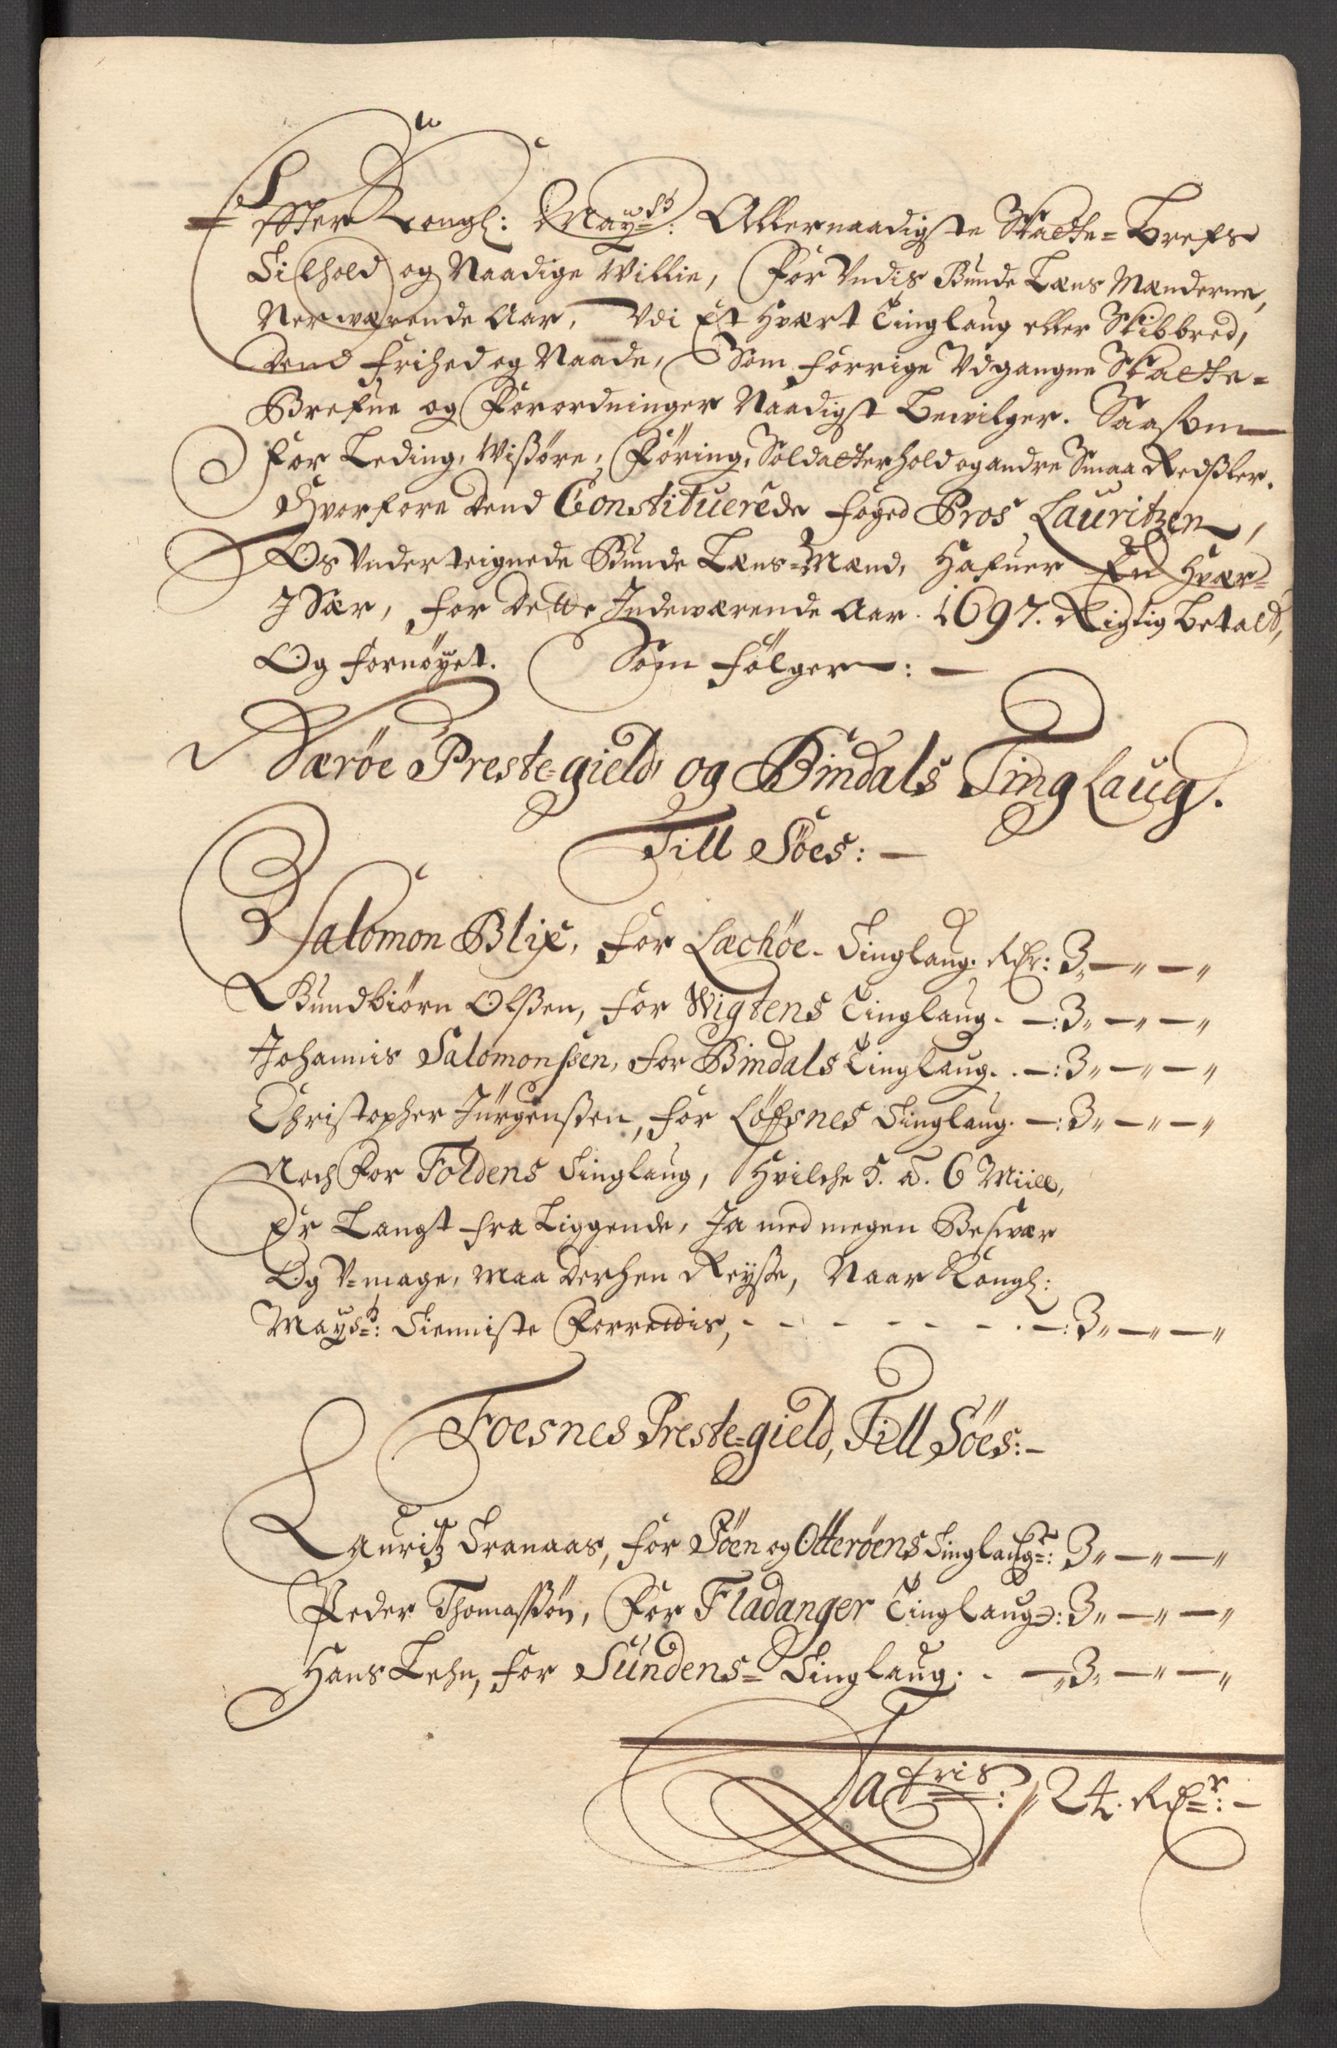 Effter Kongl: May:st: Allernaadigste Skatte=Brefs
Tilhold og Naadige Villie, For Undis Bunde Læns Mænderne,
Nerwærende Aar, Udi Et Hvært Tinglaug eller Skibbred,
Dend Frihed og Naade, Som forrige Udgangne Skatte=
Brefue og Forordninger Naadigst Bewilger. Saasom
For Leding, Wissøre, Føring, Soldatterhold og andre Smaa Redsler.
Hvorfore Dend Constituerede Foged Bros Lauritzen,
Os Underteignede Bunde Læns=Mænd, Hafuer En Hvær
I Sær, for dette Indewærende Aar. 1697. Rigtig Betald,
Og Fornøyet. Som Følger: —
Nærøe Preste=gield og Bindals Ting Laug.
Till Söes: —
Salomon Blix, for Læchöe- Tinglaug. Rdr: 3,, — ,, — ,,
Gundbiørn Olssen, for Wigtens Tinglaug. — : 3,, — ,, — ,,
Johannis Salomonssen, for Bindals Tinglaug. . — : 3,, — ,, — ,,
Christopher Jürgenssen, for Løfsnes Tinglaug. — : 3,, — ,, — ,,
Noch For Foldens Tinglaug, Hvilche 5. a. 6 Miill,
Er Langt fra Liggende, Ja med megen Beswær
Og U=mage, maa derhen Reysse, Naar Kongl:
Mayst: Tienniste Forrettis, - - - - - - . — : 3,, — ,, — ,,
Foesnes Preste=gield, Till Söes: —
Lauritz Tranaas, for Söen og Otterøens Tinglaug: 3,, — ,, — ,,
Peder Thomassøn, For Fladanger Tinglaug: 3,, — ,, — ,,
Hans Lehn, for Sundens= Tinglaug. . — ,, 3,, — ,, — ,,
Latris: 24. Rdr: —